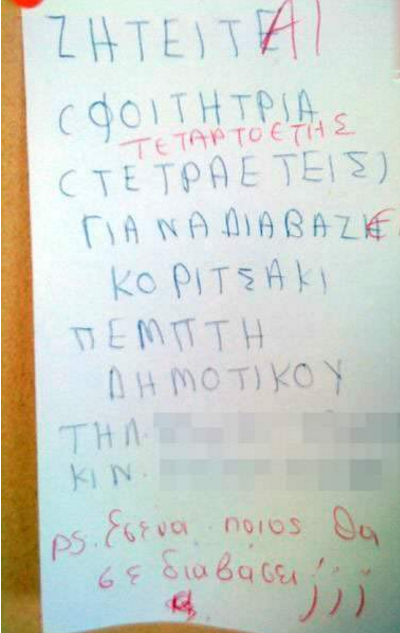 ΖΗΤΕΙΤΕ ΑΙ
(ΦΟΙΤΗΤΡΙΑ
ΤΕΤΑΡΤΟΕΤΗΣ
(ΤΕΤΡΑΕΤΕΙΣ)
ΓΙΑ ΝΑ ΔΙΑΒΑΖΙΕ
ΚΟΡΙΤΣΑΚΙ
ΠΕΜΠΤΗ
ΔΗΜΟΤΙΚΟΥ
ΤΗΛ.
ΚΙΝ.
ps. Εσενα ποιος θα
σε διαβασει!;;;